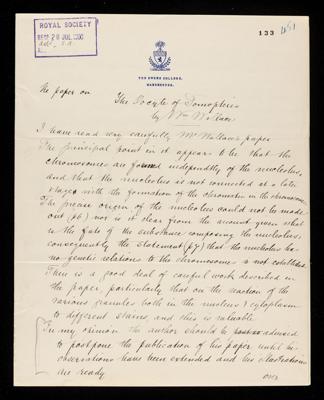 ROYAL SOCIETY
28 JUL 1900
133
THE OWENS COLLEGE,
MANCHESTER.
The paper on
The Oocyte of Tomopteris
by Wm Wallace
I have read very carefully Mr Wallace's paper
The principal point in it appears to be that the
chromosomes are formed independtly of the nucleolus,
and that the nucleolus is not connected at a later
stage with the formation of the chromatin in the chromosomes.
The precise origin of the nucleolus could not be made
out (p6) nor is it clear from the account given what
is the fate of the substance composing the nucleolus,
consequently the statement (p7) that the nucleolus has
no genetic relations to the chromosomes is not established.
There is a good deal of careful work described in
the paper, particularly that on the reaction of the
various granules both in the nucleus & cytoplasm
to different stains, and this is valuable.
In my opinion the author should be advised
to postpone the publication of his paper until his
observations have been extended and his illustrations
are ready
over